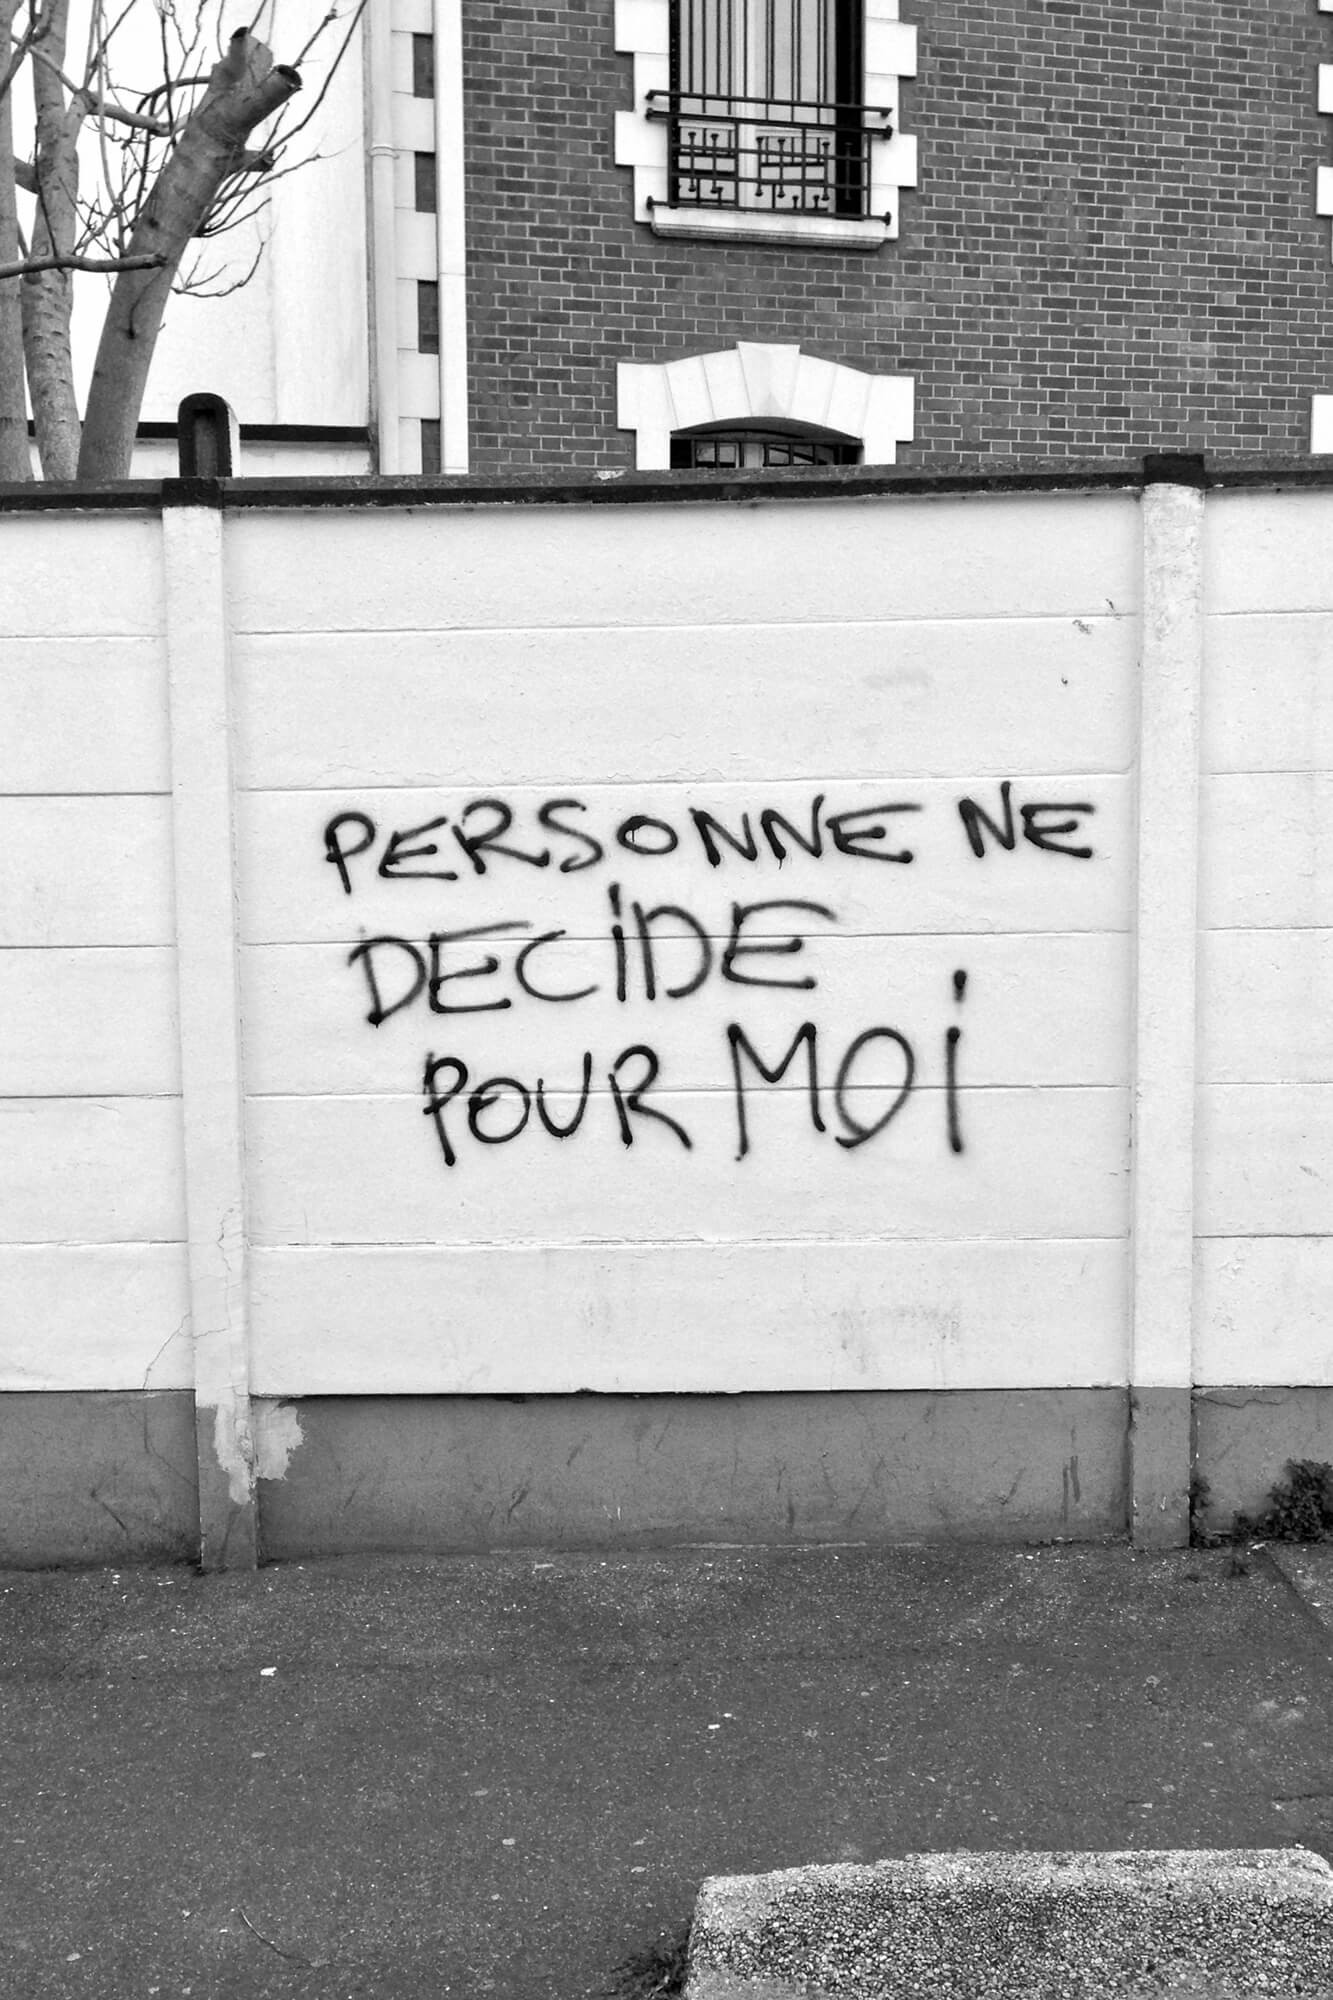 PERSONNE NE
DECIDE
POUR MOI